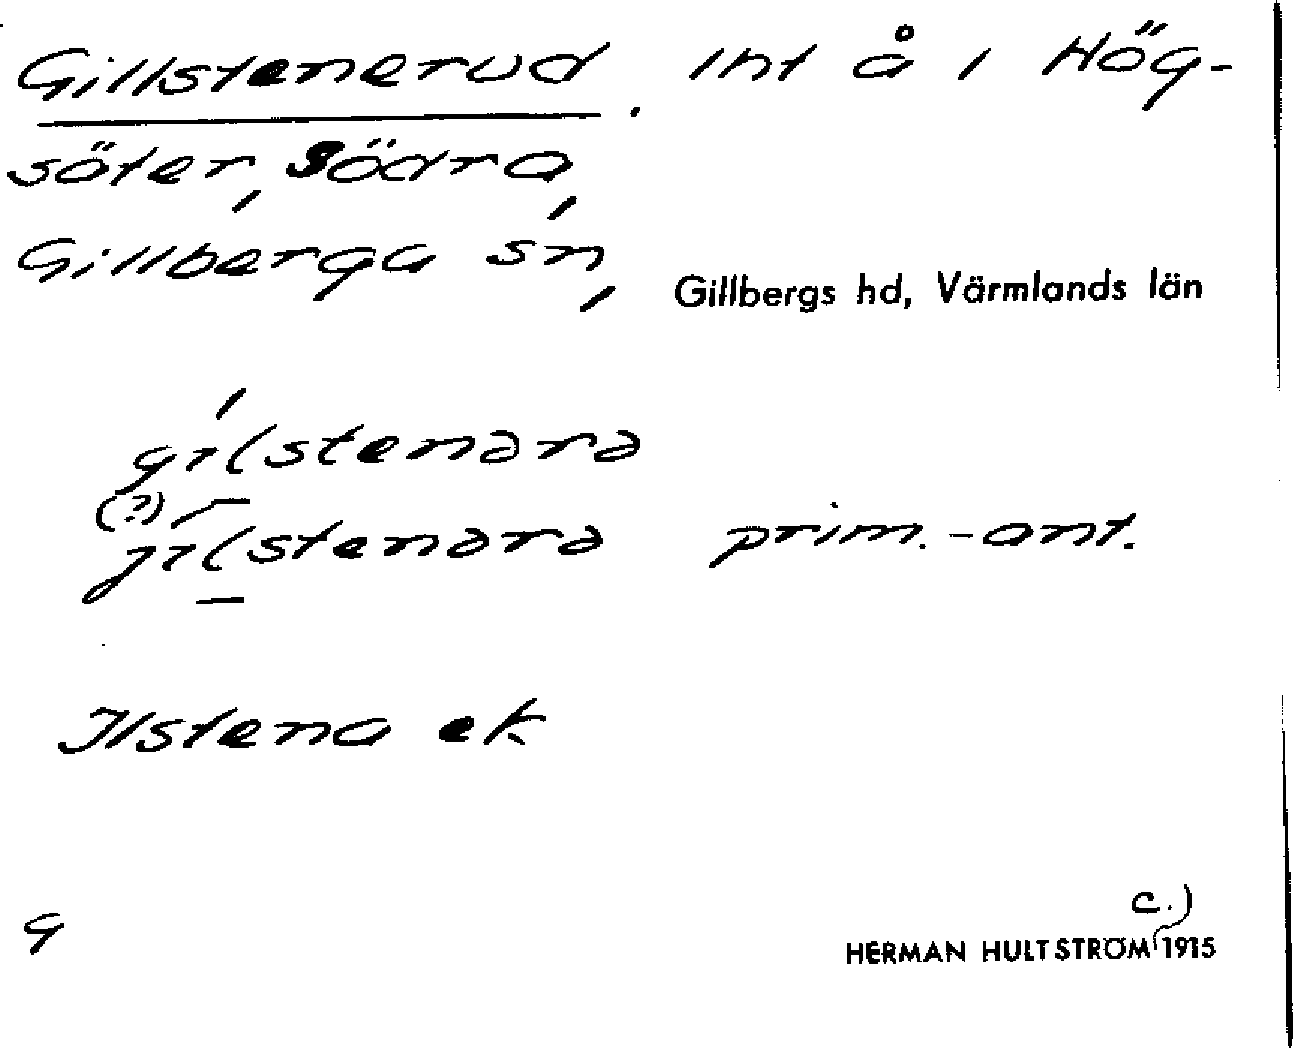 Gillstenerud. Int å i Hög-
söter, Södra,
Gillberga sn, Gillbergs hd, Värmlands län
gılstenərə
(?)
jılstenərə prim.-ant.
Ilstena ek
G
c.)
HERMAN HULTSTRÖM 1915